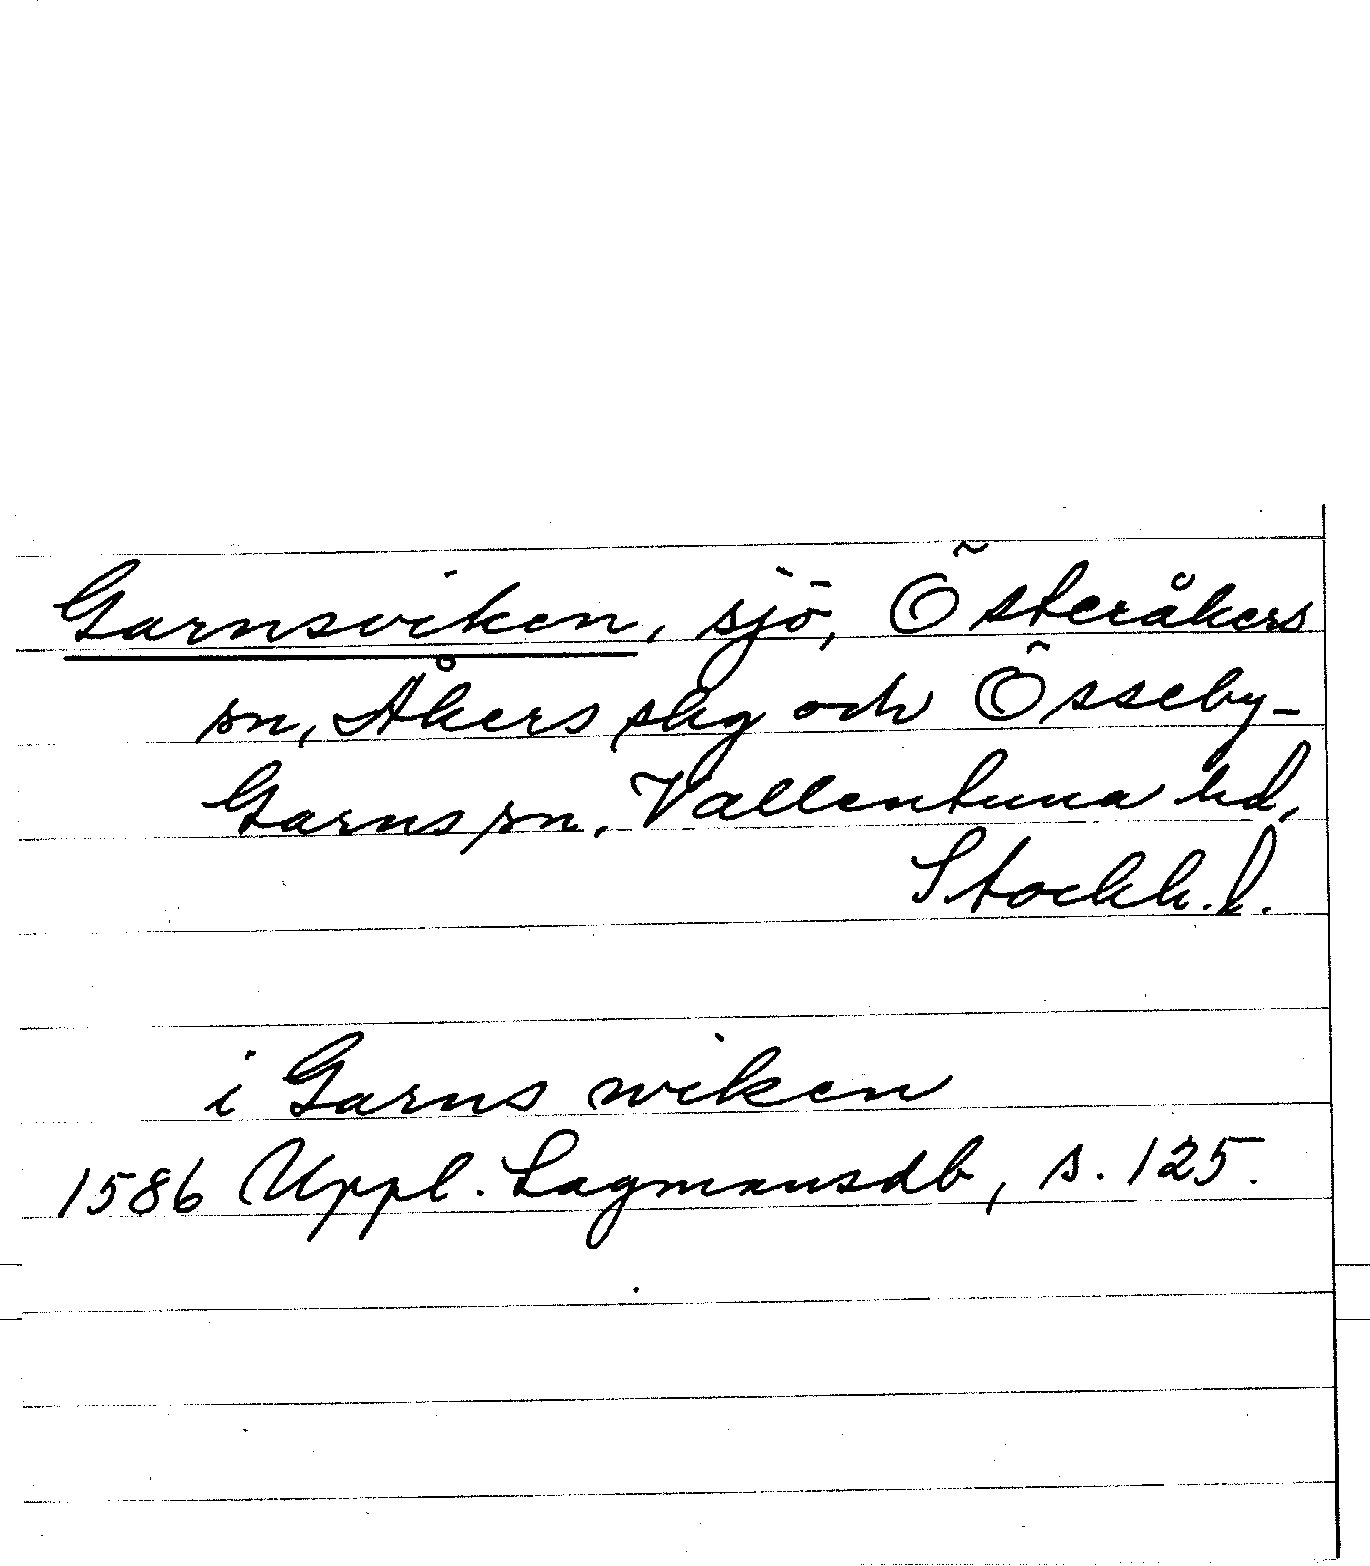 Garnsviken, sjö, Österåkers
sn, Åkers skg och Össeby-
Garns sn, Vallentuna hd,
Stockh. l.
i Garns wiken
1586 Uppl. Lagmansdb, s. 125.